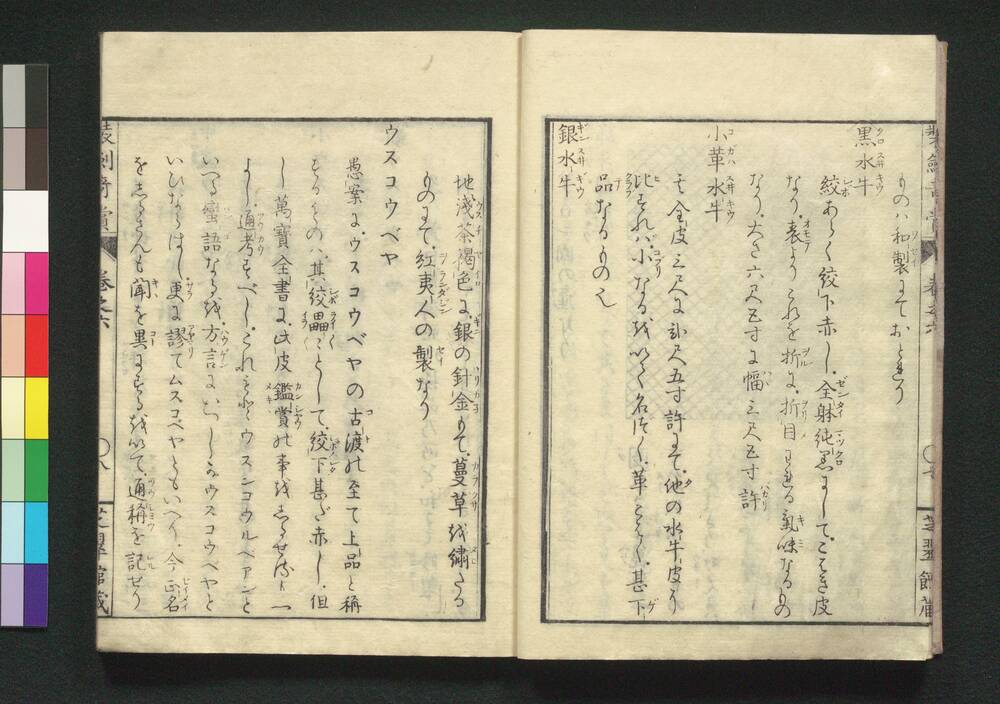 ものハ和製にておとれり
黒水牛
絞あらく絞下赤し全躰純黒にしてこはき皮
なり表よりこれを折に折目われる気味なるもの
なり大さ六尺五寸に幅三尺五寸許
小革水牛
全皮三尺に弐尺五寸許にて他の水牛皮より
比すれバ小なるを以て名づく革こはく甚下
品なるもの也
銀水牛
地浅茶褐色に銀の針金もて蔓草を繍たる
ものにて紅夷人の製なり
ウスコウベヤ
愚案にウスコウベヤの古渡の至て上品と稱
するものハ其絞磊〻として絞下甚だ赤し但
し萬寳全書に此皮鑑賞の事をしるせり
よし通考すべしこれもとウスシコウルベアンと
いへる蛮語なるを方言にウスコウベヤと
いひならはし更に謬てムスコベヤともいへり今正名
をしるさんも聞を異にするを以て通稱を記せり
装劍奇賞
卷之六
〇七
芝翠館蔵
装劍奇賞
卷之六
〇八
芝翠館蔵